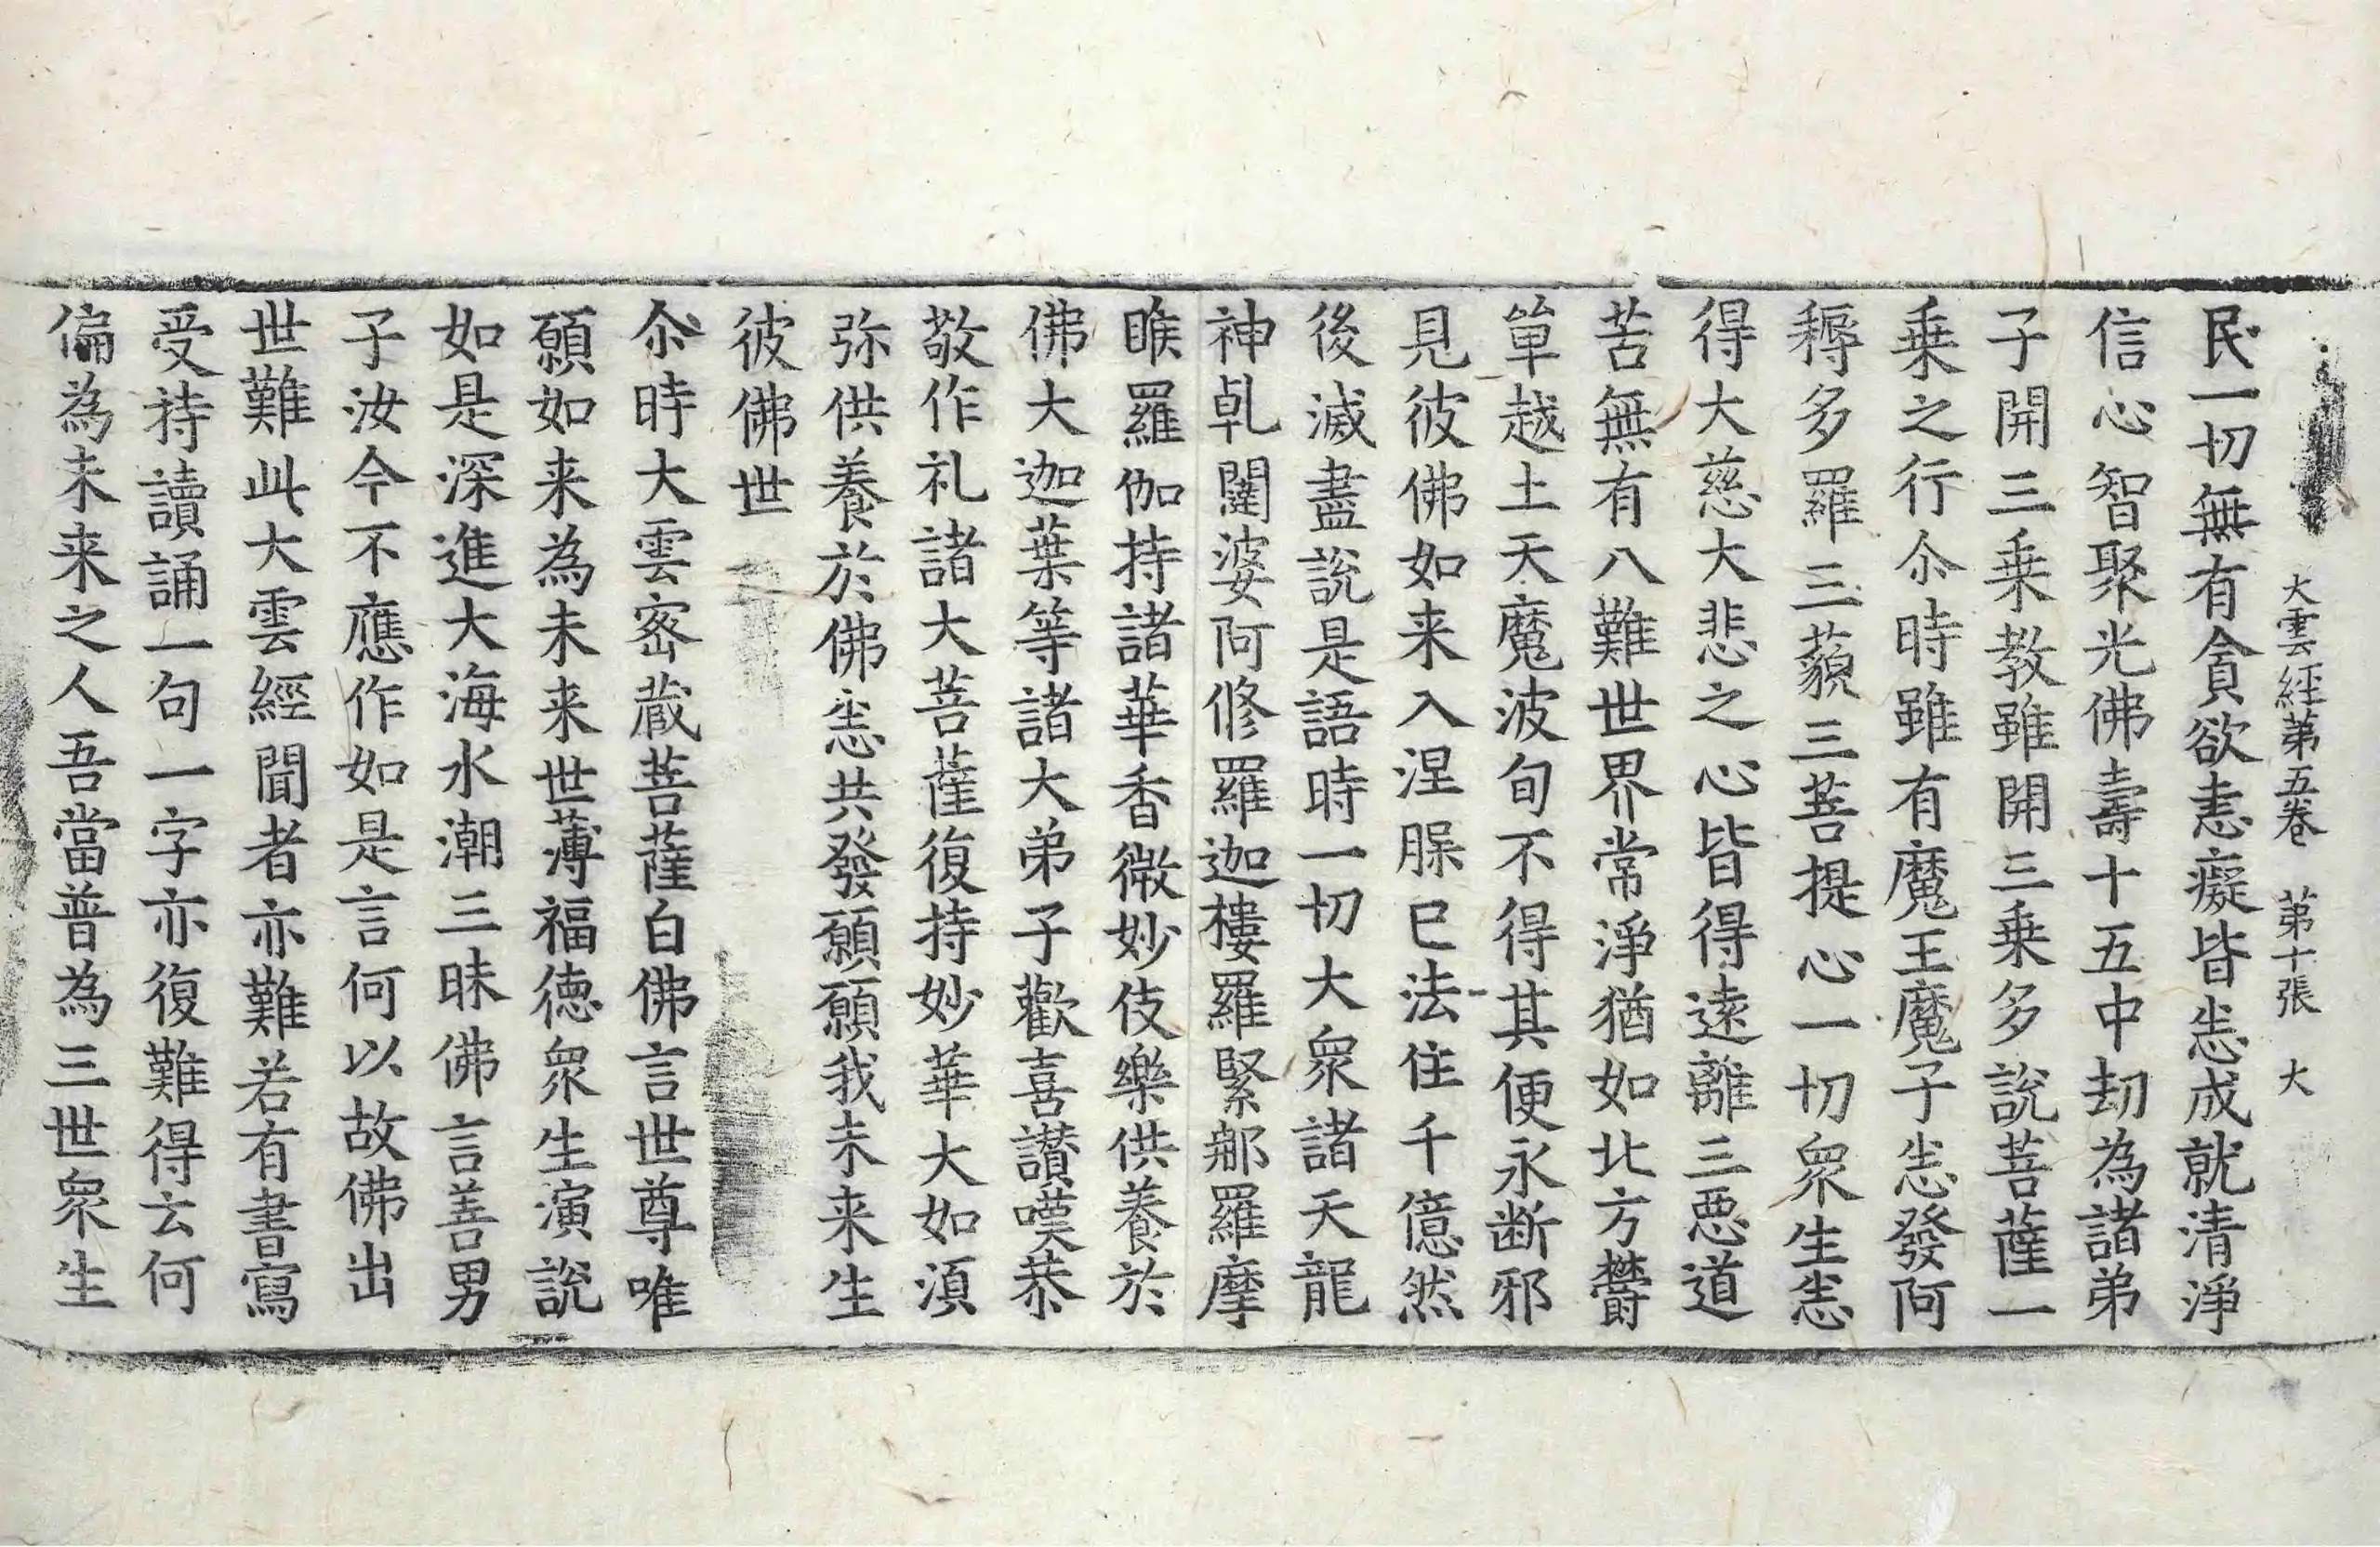 大雲經第五卷 第十張 大
民一切無有貪欲恚癡皆悉成就清淨
信心智聚光佛壽十五中劫為諸弟
子開三乗教雖開三乗多說菩薩一
乗之行尒時雖有魔王魔子悉發阿
耨多羅三藐三菩提心一切衆生悉
得大慈大悲之心皆得遠離三惡道
苦無有八難世界常淨猶如北方欝
單越土天魔波旬不得其便永断邪
見彼佛如来入涅槃已法住千億然
後滅盡說是語時一切大衆諸天龍
神乹闥婆阿修羅迦樓羅緊那羅摩
睺羅伽持諸華香微妙伎樂供養於
佛大迦葉等諸大弟子歡喜讃嘆恭
敬作礼諸大菩薩復持妙華大如湏
弥供養於佛悉共發願願我未来生
彼佛世
尒時大雲宻蔵菩薩白佛言世尊唯
願如来為未来世薄福德衆生演說
如是深進大海水潮三昧佛言善男
子汝今不應作如是言何以故佛出
世難此大雲經聞者亦難若有書寫
受持讀誦一句一字亦復難得云何
偏為未来之人吾當普為三世衆生